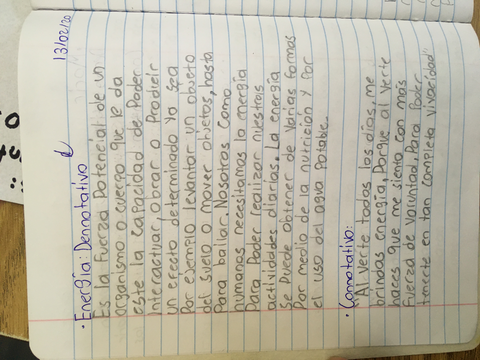 13/02/20
• Energía: Dennotativo
Es la fuerza potencial de un
organismo o cuerpo que le da
este la capacidad de poder
interactuar, obrar o producir
un efecto determinado ya sea
por ejemplo levantar un objeto
del suelo o mover objetos, hasta
para bailar. Nosotros como
humanos necesitamos la energía
para poder realizar nuestras
actividades diarias. La energía
se puede obtener de varias formas
por medio de la nutrición y por
el uso del agua potable.
• Connotativo:
Al verte todos los días, me
brindas energía, porque al verte
haces que me sienta con mas
fuerza de voluntad, para poder
tenerte en tan completa vivacidad"